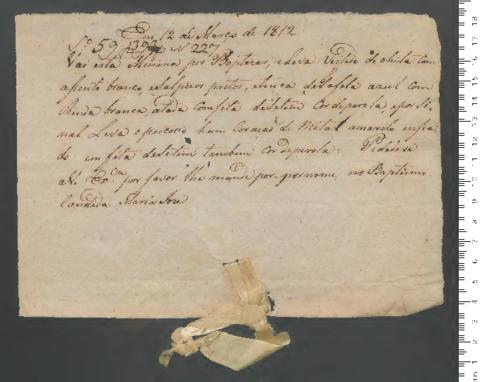 Em 12 de Março de 1812
Sº 59 1392 N 227
Vai esta Menina por Baptizar, e leva Vestido de chita com
assento branco e salpicos pretos, touca de Tafetá azul com
renda branca, atada com fita de setim Cor de perola, e por Si-
nal Leva o pescoço hum Coração de Metal amarelo enfia-
do em fita de Setim tambem cor de perola: Pedesse
por favor lhe mande por por nome, no Baptismo
Candida Maria Joze